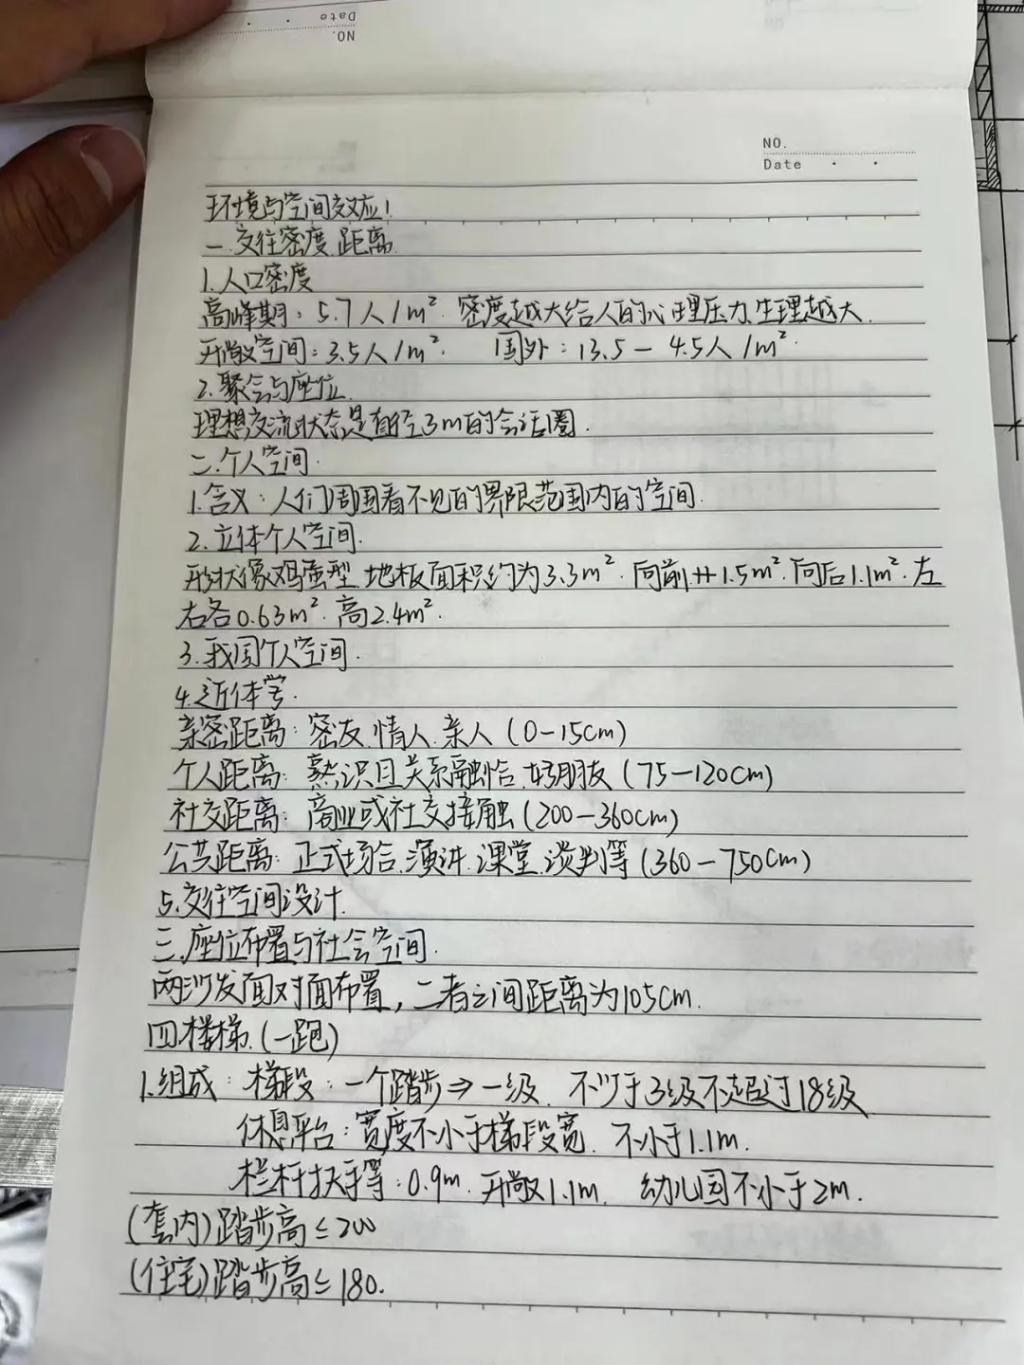 NO.
Date
NO.
Date
环境与空间效应!
一.交往密度.距离
1.人口密度
高峰期:5.7人/m². 密度越大给人的心理压力.生理越大.
开敞空间:3.5人/m². 国外:13.5-4.5人/m².
2.聚会与座位.
理想交流状态是直径3m的会话圈.
二.个人空间.
1.含义:人们周围看不见的界限范围内的空间.
2.立体个人空间.
形状像鸡蛋型.地板面积约为3.3m².向前1.5m².向后1.1m².左
右各0.63m².高2.4m².
3.我国个人空间.
4.近体学.
亲密距离:密友.情人.亲人(0-15cm)
个人距离:熟识且关系融恰.好朋友(75-120cm)
社交距离:商业或社交接触(200-360cm)
公共距离:正式场合.演讲.课堂.谈判等(360-750cm)
5.交往空间设计.
三.座位布置与社会空间.
两沙发面对面布置,二者之间距离为105cm.
四.楼梯.(一跑)
1.组成:梯段:一个踏步⇒一级.不少于3级不超过18级
休息平台:宽度不小于梯段宽.不小于1.1m.
栏杆扶手等:0.9m.开敞1.1m.幼儿园不小于2m.
(套内)踏步高≤200
(住宅)踏步高≤180.